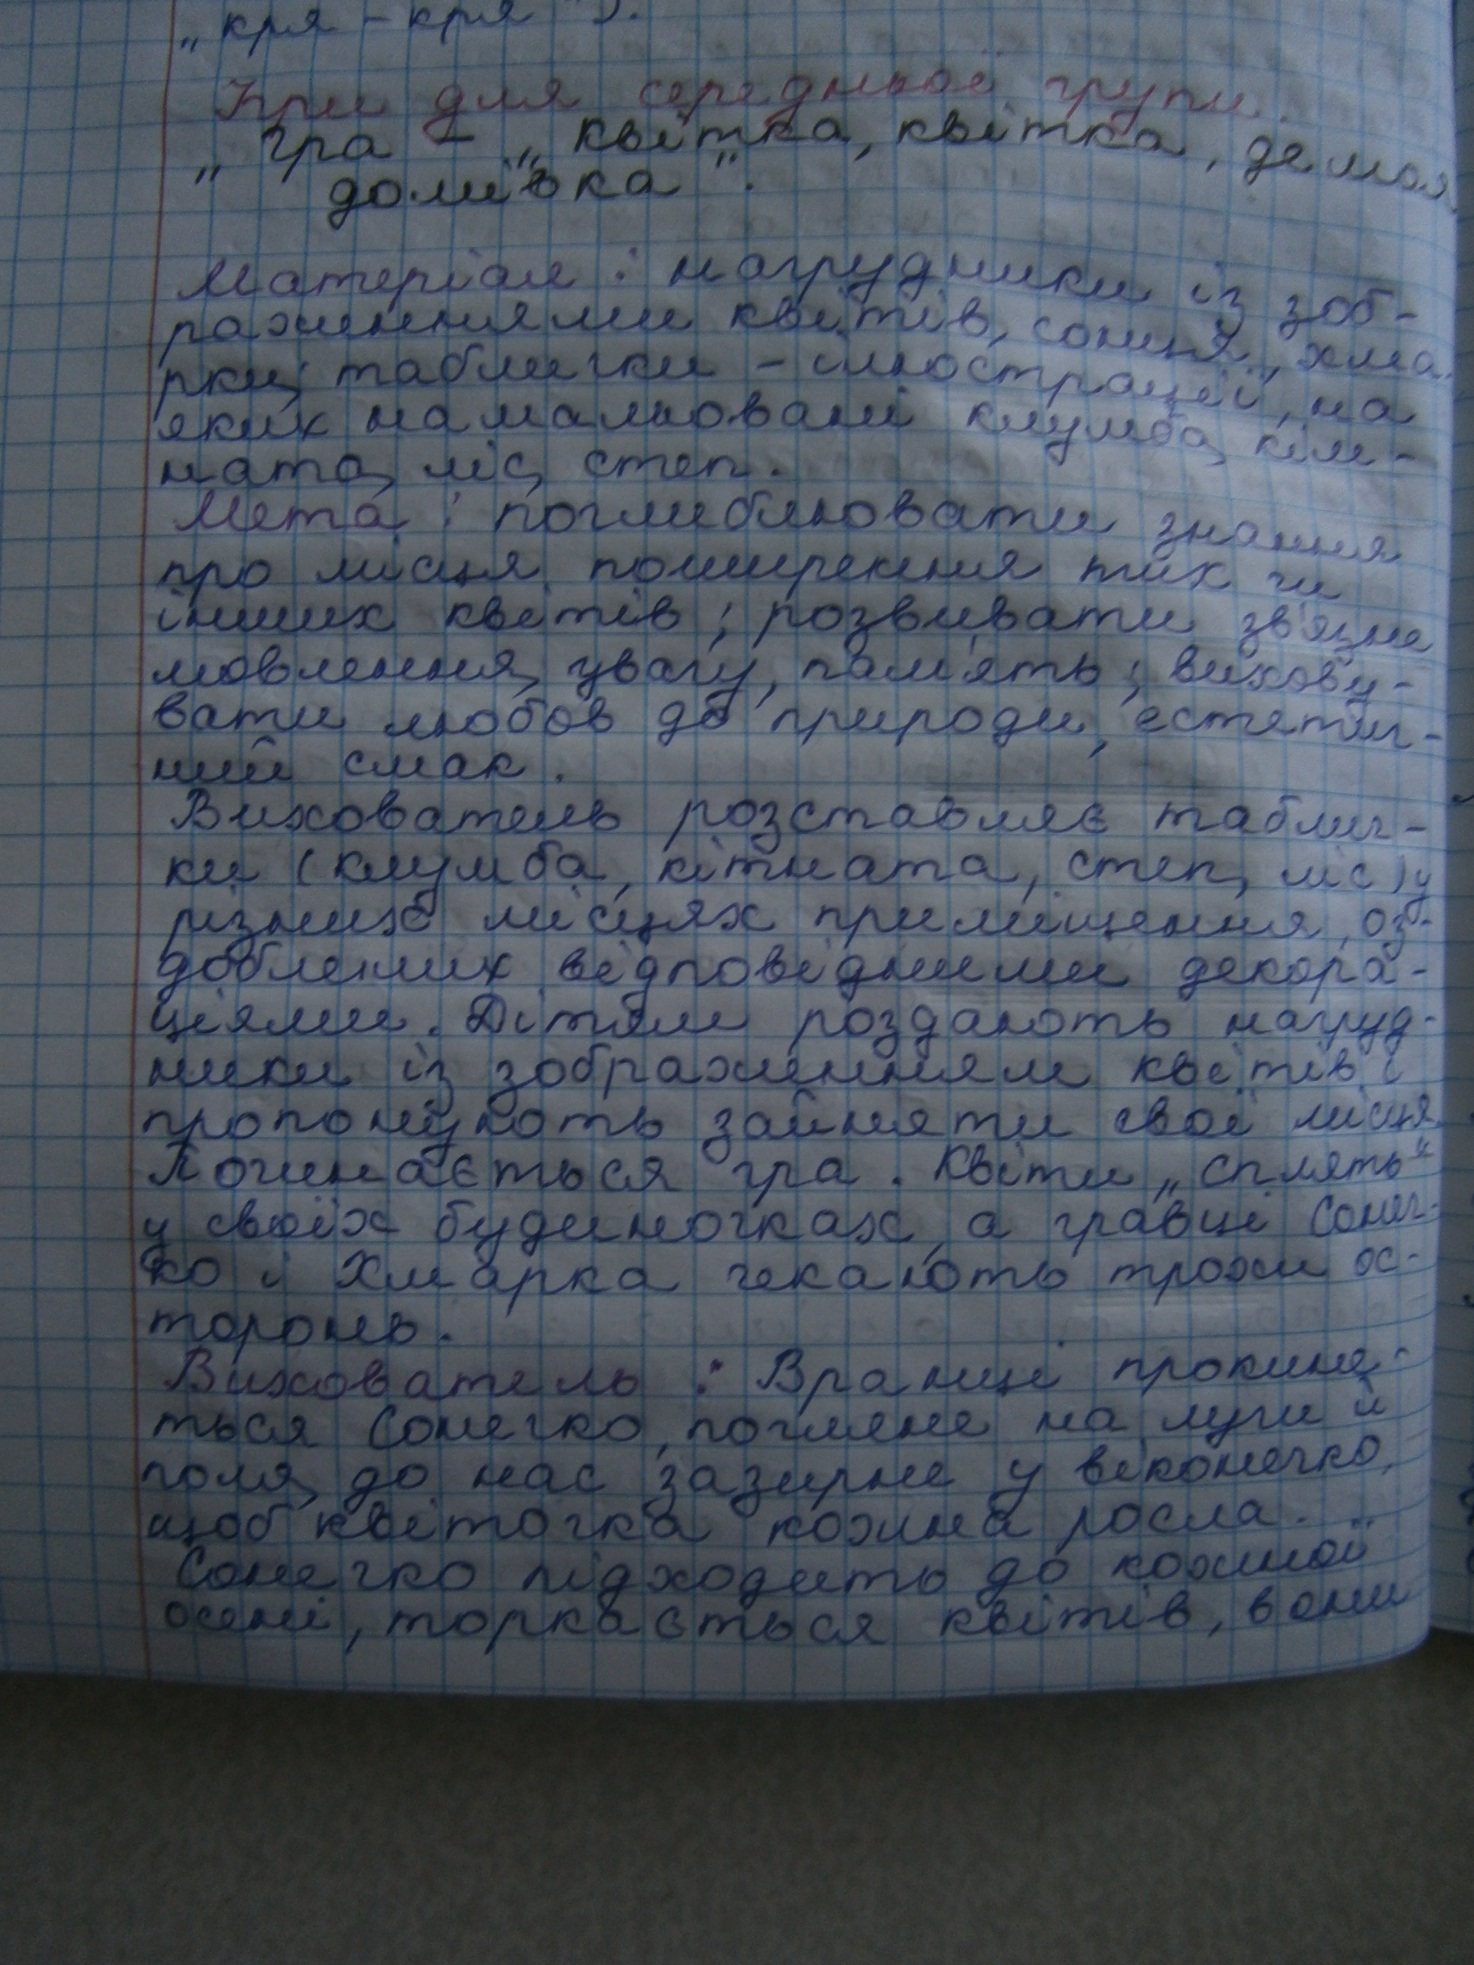 „кря - кря").
Ігри для середньої групи.
„ Гра - „ квітка, квітка, де моя
домівка".
Матеріал : нагрудники із зоб-
раженнями квітів, сонця, хма
рки; таблички - ілюстрації, на
яких намальовані клумба, кім-
ната, ліс, степ.
Мета : поглиблювати знання
про місця поширення тих чи
інших квітів ; розвивати зв'язне
мовлення, увагу, пам'ять ; вихову-
вати любов до природи, естетич-
ний смак.
Вихователь розставляє таблич-
ки (клумба, кітната, степ, ліс) у
різних місцях приміщення, оз-
доблених відповідними декора-
ціями. Дітям роздають нагруд-
ники із зображенням квітів і
пропонують зайняти свої місця.
Починається гра. Квіти „сплять"
у своїх будиночках, а гравці Сонеч-
ко і Хмарка чекають трохи ос-
торонь.
Вихователь : Вранці прокине-
ться Сонечко, погляне на луги й
поля, до нас зазирне у віконечко,
щоб квіточка кожна росла...
Сонечко підходить до кожної
оселі, торкається квітів, вони